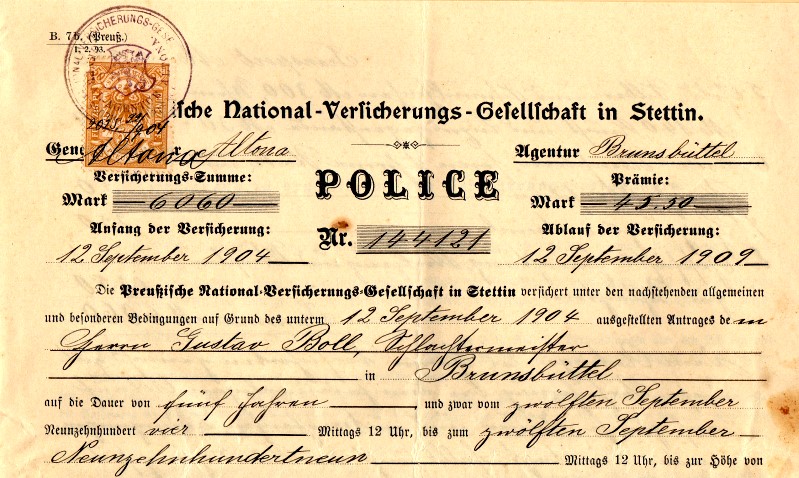 B. 7b. (Preuß.)
1. 2. 93.
ische National-Versicherungs-Gesellschaft in Stettin.
Altona
Altona
Agentur Brunsbüttel
Versicherungs-Summe:
POLICE
Prämie:
Mark 6060
Mark 45.50
Anfang der Versicherung:
Nr. 144121
Ablauf der Versicherung:
12 September 1904
12 September 1909
Die Preußische National-Versicherungs-Gesellschaft in Stettin versichert unter den nachstehenden allgemeinen
und besonderen Bedingungen auf Grund des unterm 12 September 1904 ausgestellten Antrages de m
Herrn Gustav Boll, Schlachtermeister
in Brunsbüttel
auf die Dauer von fünf Jahren und zwar vom zwölften September
Neunzehnhundert vier Mittags 12 Uhr, bis zum zwölften September
Neunzehnhundertneun Mittags 12 Uhr, bis zur Höhe von